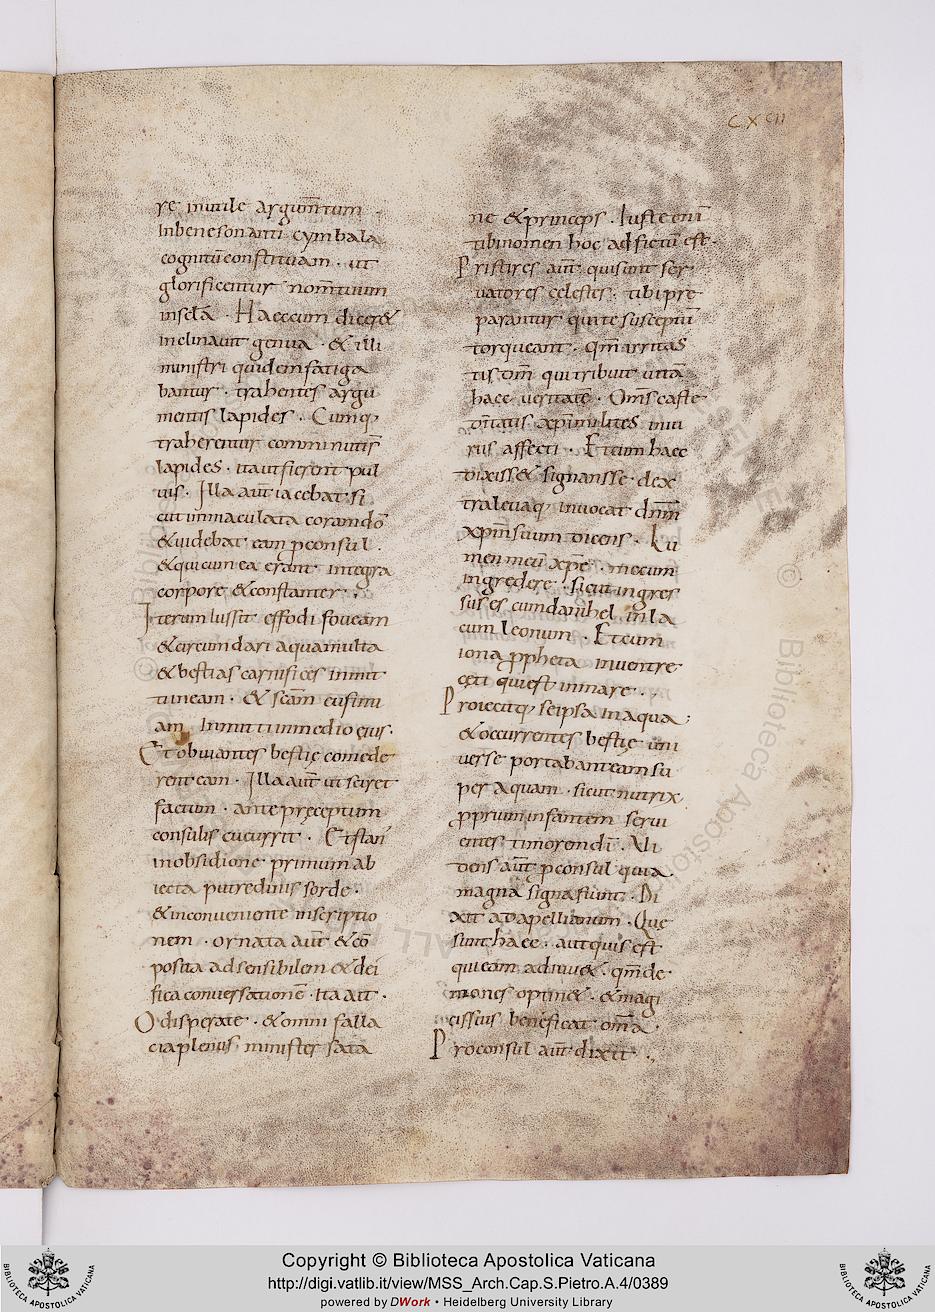 CXCII
re inutile argum̅tum
Inbenesonanti cymbala
cognitu̅ constituam · ut
glorificentur nom̅ tuum
insc̅la̅ · Haec cum dicer&
inclinauit genua · & illi
ministri quidem fatiga
bantur · trahentes argu
mentis lapides · Cumq;
traherentur comminutis̅
lapides · ita ut fierent pul
uis · Illa aut̅ iacebat si
cut immaculata coram do̅
& uidebat eam p̱consul ·
& qui cum ea erant · integra
corpore & constanter ·
Iterum iussit effodi foueam
& circumdari aqua multa
& bestias carnifices inmit
ti in eam · & sc̅am eufimi
am Inmitti inmedio eius ·
Et obuiantes bestię comede
rent eam · Illa aut̅ ut sciret
factum · ante pręceptum
consulis cucurrit · Et stan̅
in obsidione primum ab
iecta putredinis sorde ·
& inconueniente inscriptio
nem · ornata aut̅ & co̅
posita ad sensibilem & dei
fica conuersatione̅ · Ita ait ·
O disperate · & omni falla
cia plenus minister sata
ne & princeps · Iuste eni̅
tibi nomen hoc adfictu̅ est ·
Pristires aut̅ qui sunt ser
uatores celestis · tibi pre
parantur qui te susceptu̅
torqueant · qm̅ irritas
tis dm̅ qui tribuit uita̅
haec ueritate̅ · Om̅s caste
xp̅i milites
rus affecti · Et cum haec
dixiss& signans se · dex
tra leuaq; inuocat dn̅m
xp̅m suum dicens · Lu
men meu̅ xp̅e · mecum
ingredere · sicut ingres
sus es cum danihel in la
cum leonum · Et cum
iona p̱pheta in uentre
ceti qui est in mare ·
Proiecitq; se ipsa In aqua ;
& occurrentes bestię uni
uerse portabant eam su
per aquam · sicut nutrix
p̱prium infantem serui
entes timoren di̅ · Ui
dens aut̅ p̱consul quia
magna signa fiunt · Di
xit ad apellianum · Que
sunt haec · aut quis est
qui eam adiuu& · qm̅ de
mones opin& · & magi
cis suis beneficat om̅a ·
Proconsul aut̅ dixit ·
Copyright © Biblioteca Apostolica Vaticana
http://digi.vatlib.it/view/MSS_Arch.Cap.S.Pietro.A.4/0389
powered by DWork • Heidelberg University Library